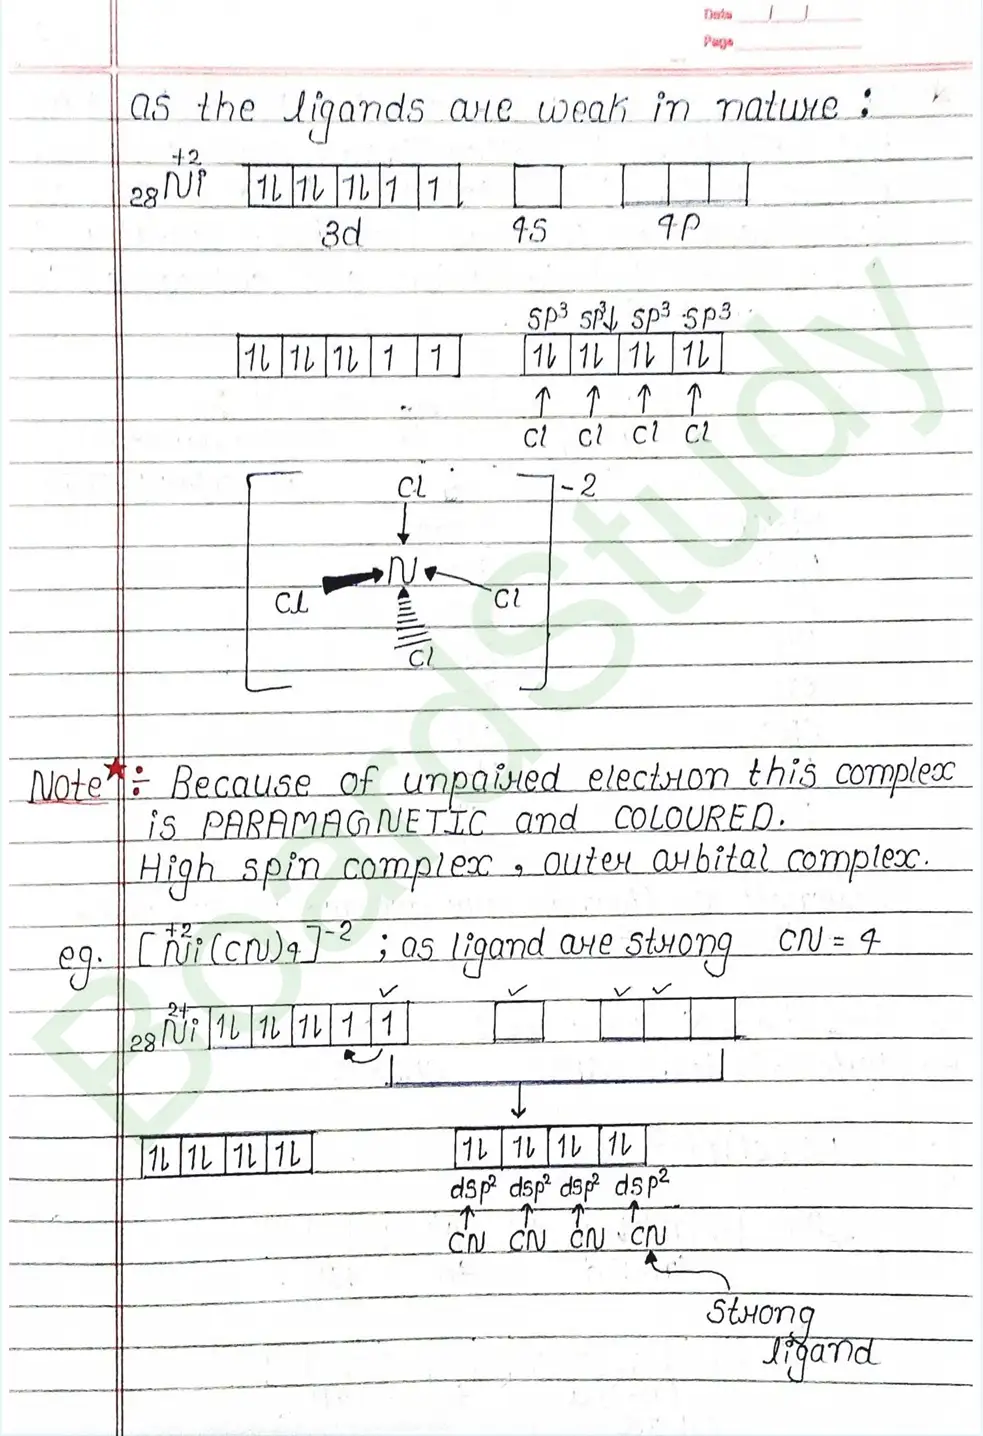 Date / /
Page
as the ligands are weak in nature :
+2
28Ni 1l 1l 1l 1 1
3d 4s 4p
sp³ sp³↓ sp³ sp³
1l 1l 1l 1 1 1l 1l 1l 1l
↑ ↑ ↑ ↑
Cl Cl Cl Cl
Cl -2
N
Cl Cl
Cl
Note★ :- Because of unpaired electron this complex
is PARAMAGNETIC and COLOURED.
High spin complex , outer orbital complex.
eg. [Ni+2(CN)4]-2 ; as ligand are strong CN = 4
✓ ✓ ✓ ✓
28Ni2+ 1l 1l 1l 1 1
1l 1l 1l 1l 1l 1l 1l 1l
dsp² dsp² dsp² dsp²
↑ ↑ ↑ ↑
CN CN CN CN
Strong
ligand
BoardStudy